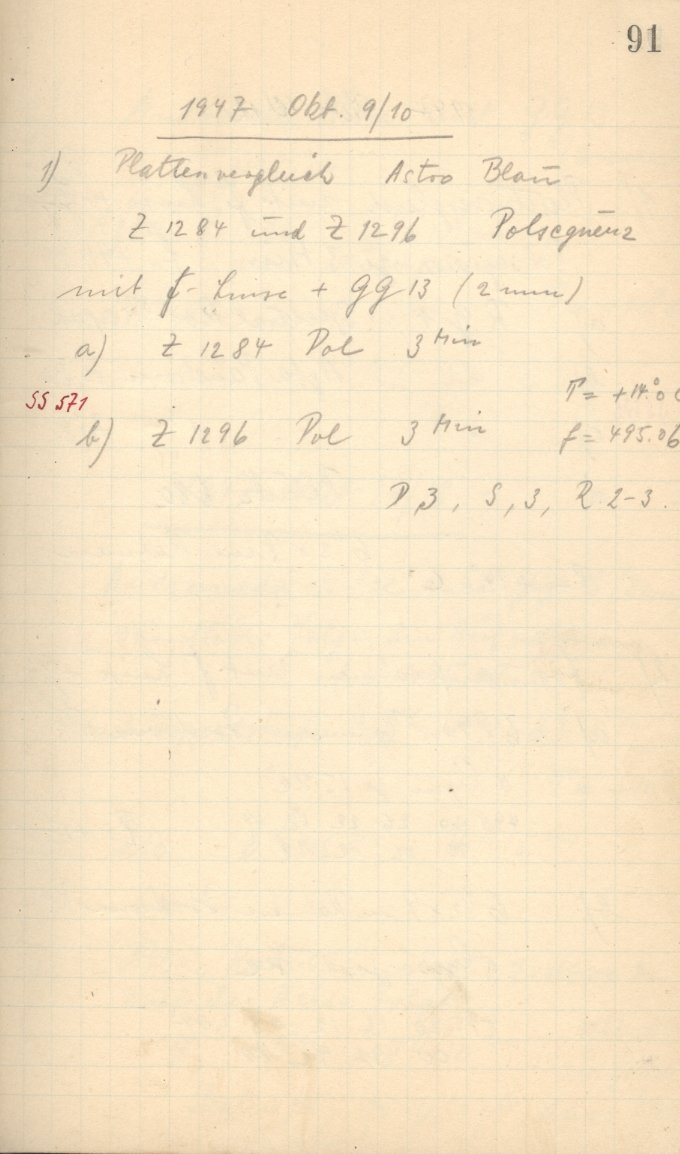 91
1947 Okt. 9/10
1) Plattenvergleich Astro Blau
Z 1284 und Z 1296 Polsequenz
mit f-Linse + GG 13 (2 mm)
a) Z 1284 Pol 3 Min
T = +14.°0
SS 571
b) Z 1296 Pol 3 Min f = 495.06
D 3, S, 3, R 2-3.